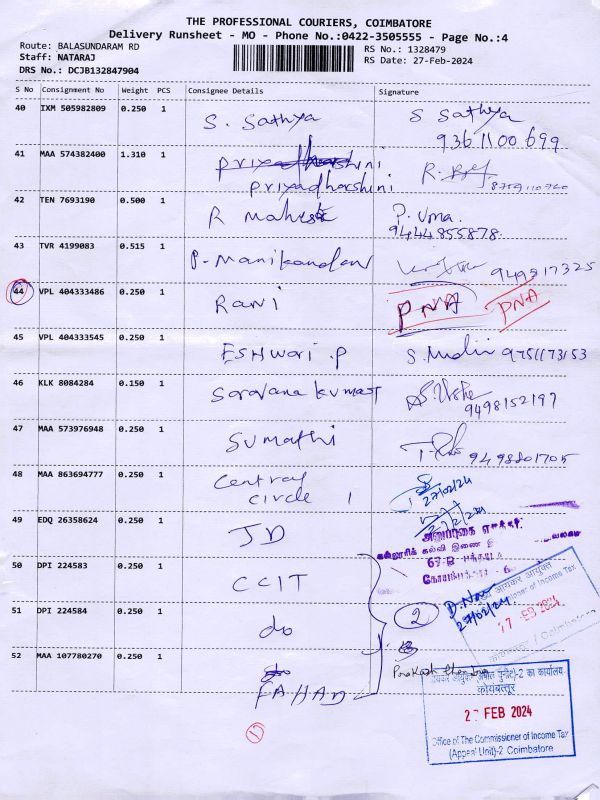 THE PROFESSIONAL COURIERS, COIMBATORE
Delivery Runsheet - MO - Phone No.:0422-3505555 - Page No.:4
Route: BALASUNDARAM RD
RS No.: 1328479
Staff: NATARAJ
RS Date: 27-Feb-2024
DRS No.: DCJB132847904
S No Consignment No Weight PCS Consignee Details Signature
40 IXM 505982809 0.250 1 S. Sathya S Sathya
9361100699
41 MAA 574382400 1.310 1 Priyadharshini R.
Priyadharshini
42 TEN 7693190 0.500 1 R Mahesh P. Uma.
9444855878
43 TVR 4199083 0.515 1 P. Manikandan 949817325
44 VPL 404333486 0.250 1 Rani PNA PNA
45 VPL 404333545 0.250 1 ESHwari .P S. 9751173153
46 KLK 8084284 0.150 1 Saravana kumar
9498152197
47 MAA 573976948 0.250 1 Sumathi 9498801705
48 MAA 863694777 0.250 1 Central
circle 1 27/02/24
49 EDQ 26358624 0.250 1 JD
அலுவலகம்
கல்லூரிக் கல்வி இணை
50 DPI 224583 0.250 1 CCIT
51 DPI 224584 0.250 1 do 2
27/02/24
Commissioner of Income Tax
27 FEB 2024
/ Coimbatore
52 MAA 107780270 0.250 1 do
FAHAD
का कार्यालय
कोयंबत्तूर
27 FEB 2024
Office of The Commissioner of Income Tax
(Appeal Unit)-2 Coimbatore